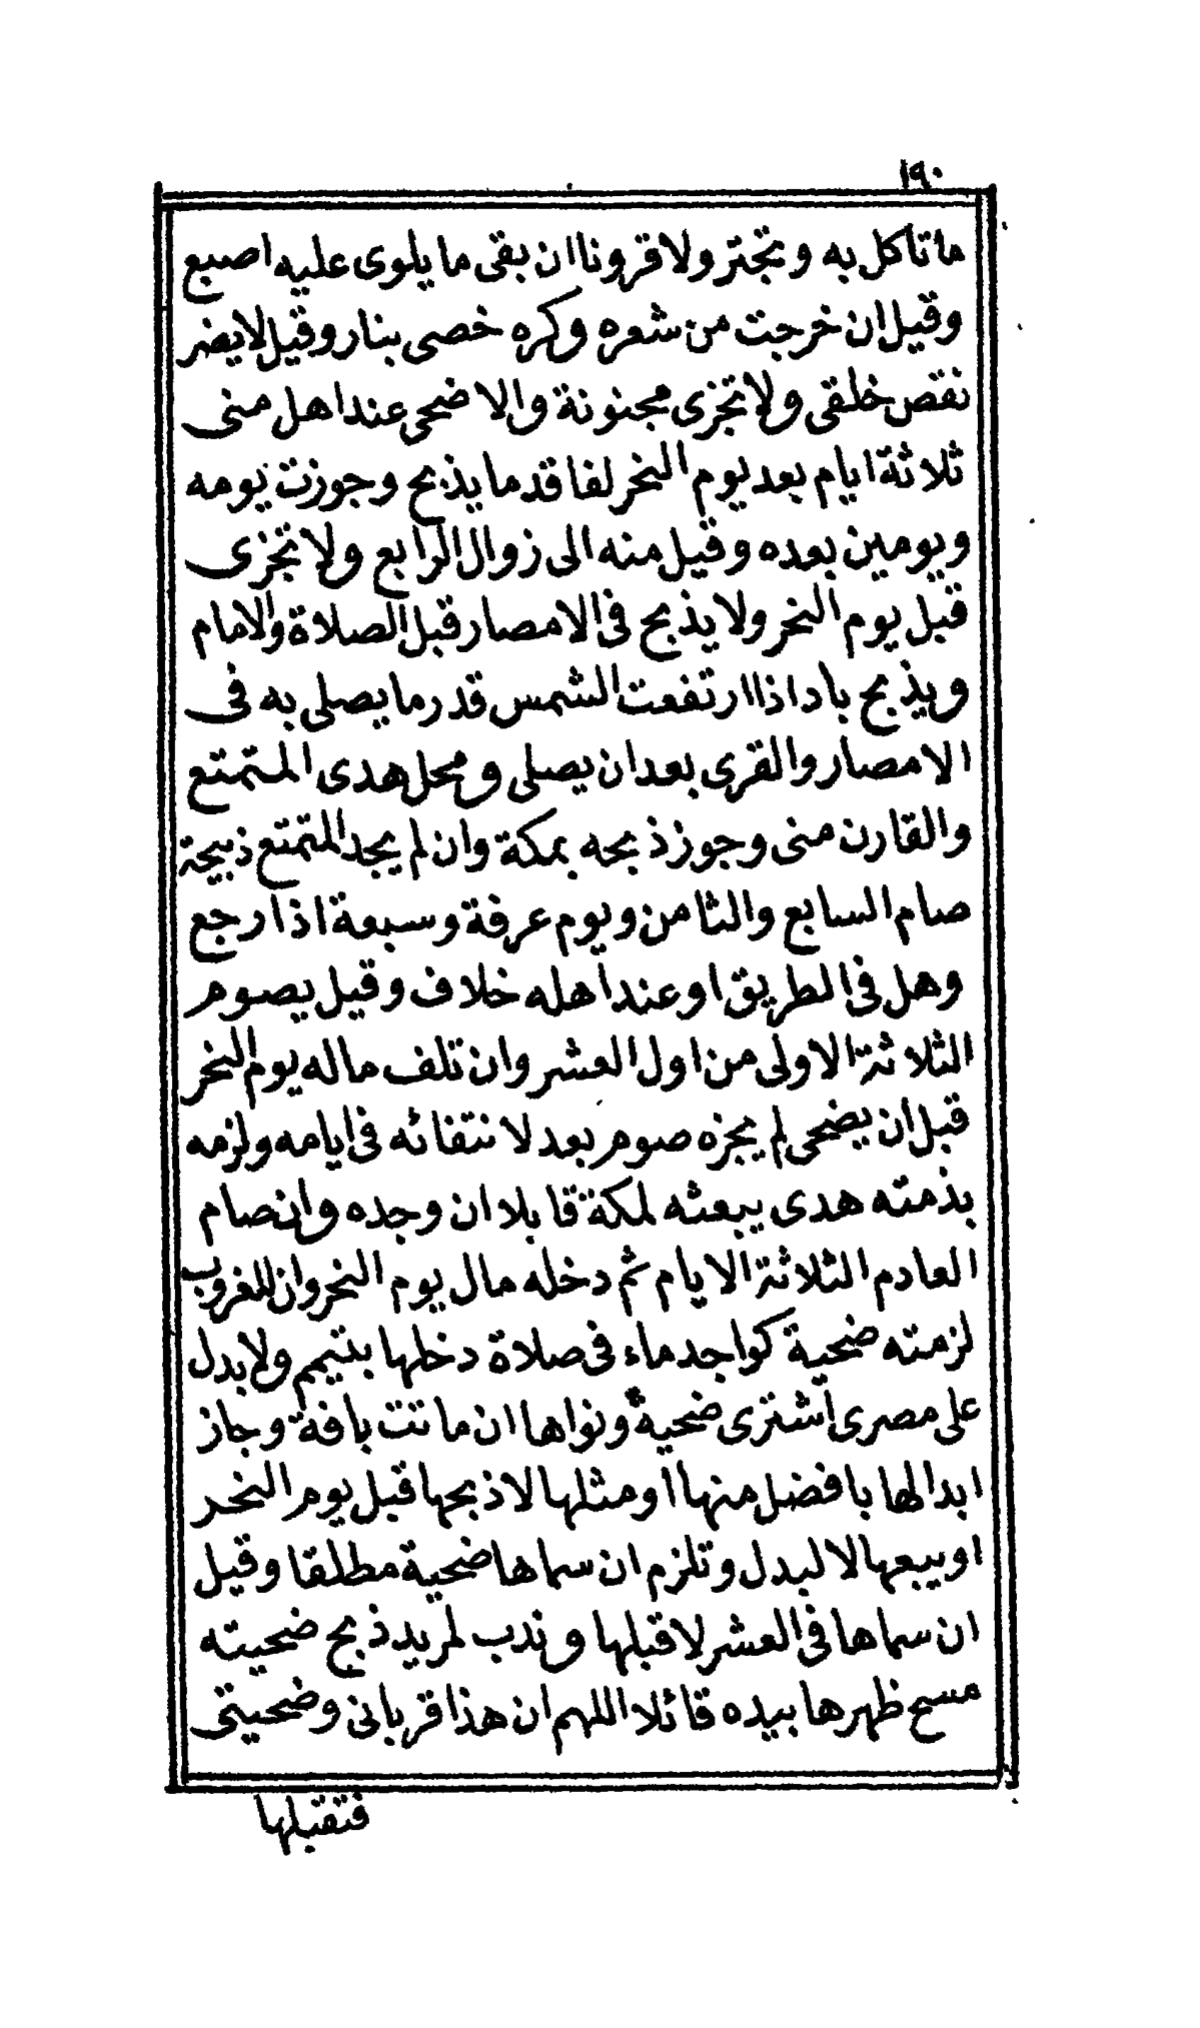 ١٩٠
ماتاكل به وتجتر ولا قرونا ان بقى ما يلوى عليه اصبع
وقيل ان خرجت من شعره وكره خصى بنار وقيل لا يضر
نقص خلقى ولا تجزى مجنونة والاضحى عند اهل منى
ثلاثة ايام بعد يوم النحر لفاقد ما يذبح وجوزت يومه
ويومين بعده وقيل منه الى زوال الرابع ولا تجزى
قبل يوم النحر ولا يذبح فى الامصار قبل الصلاة والامام
ويذبح باد اذا ارتفعت الشمس قدر ما يصلى به فى
الامصار والقرى بعد ان يصلى ومحل هدى المتمتع
والقارن منى وجوز ذبحه بمكة وان لم يجد المتمتع ذبيحة
صام السابع والثامن ويوم عرفة وسبعة اذا رجع
وهل فى الطريق او عند اهله خلاف وقيل يصوم
الثلاثة الاولى من اول العشر وان تلف ماله يوم النحر
قبل ان يضحى لم يجزه صوم بعد لانتفائه فى ايامه ولزمه
بذمته هدى يبعثه لمكة قابلا ان وجده وان صام
العادم الثلاثة الايام ثم دخله مال يوم النحر وان للغروب
لزمته ضحية كواجد ماء فى صلاة دخلها بتيمم ولا بدل
على مصرى اشترى ضحية ونواها ان ماتت بافة وجاز
ابدالها بافضل منها او مثلها لا ذبحها قبل يوم النحر
او بيعها الا لبدل وتلزم ان سماها ضحية مطلقا وقيل
ان سماها فى العشر لا قبلها وندب لمريد ذبح ضحيته
مسح ظهرها بيده قائلا اللهم ان هذا قربانى وضحيتى
فتقبلها